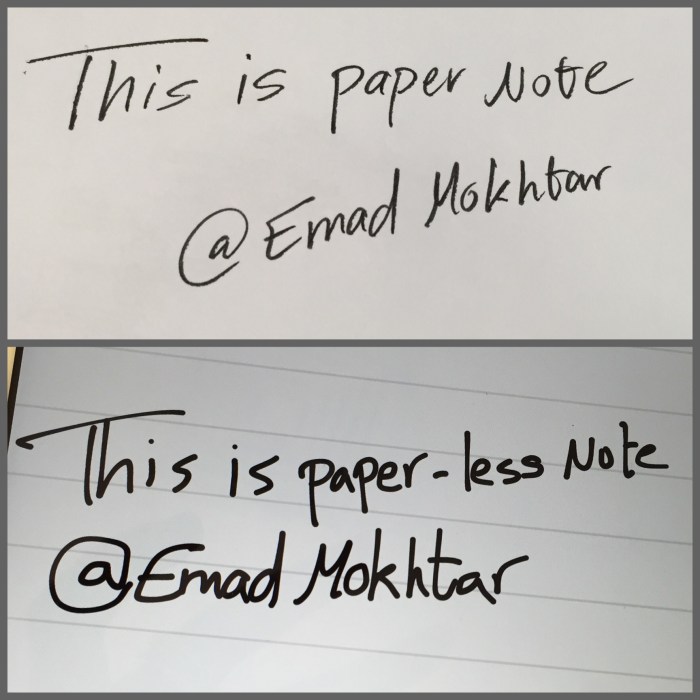 This is paper Note
@Emad Mokhtar
This is paper-less Note
@Emad Mokhtar